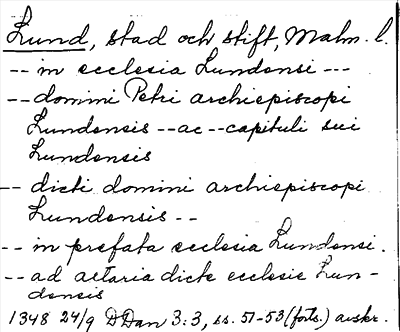 Lund, stad och stift, Malm. l.
-- in ecclesia Lundensi ---
-- domini Petri archiepiscopi
Lundensis -- ac -- capituli sui
Lundensis
-- dicti domini archiepiscopi
Lundensis --
-- in prefata ecclesia Lundensi.
-- ad altaria dicte ecclesie Lun-
densis
1348 24/9 DDan 3:3, ss. 51-53 (forts.) avskr.